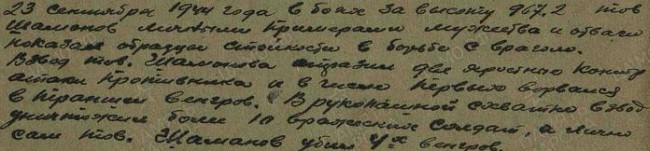 23 сентября 1944 года в боях за высоту 967.2 тов
Шаманов личными примерами мужества и отваги
показал образцы стойкости в борьбе с врагом.
Взвод тов. Шаманова отразил две яростные контр
атаки противника и в числе первых ворвался
в траншеи венгров. В рукопашной схватке взвод
уничтожил более 10 вражеских солдат, а лично
сам тов. Шаманов убил 4х венгров.